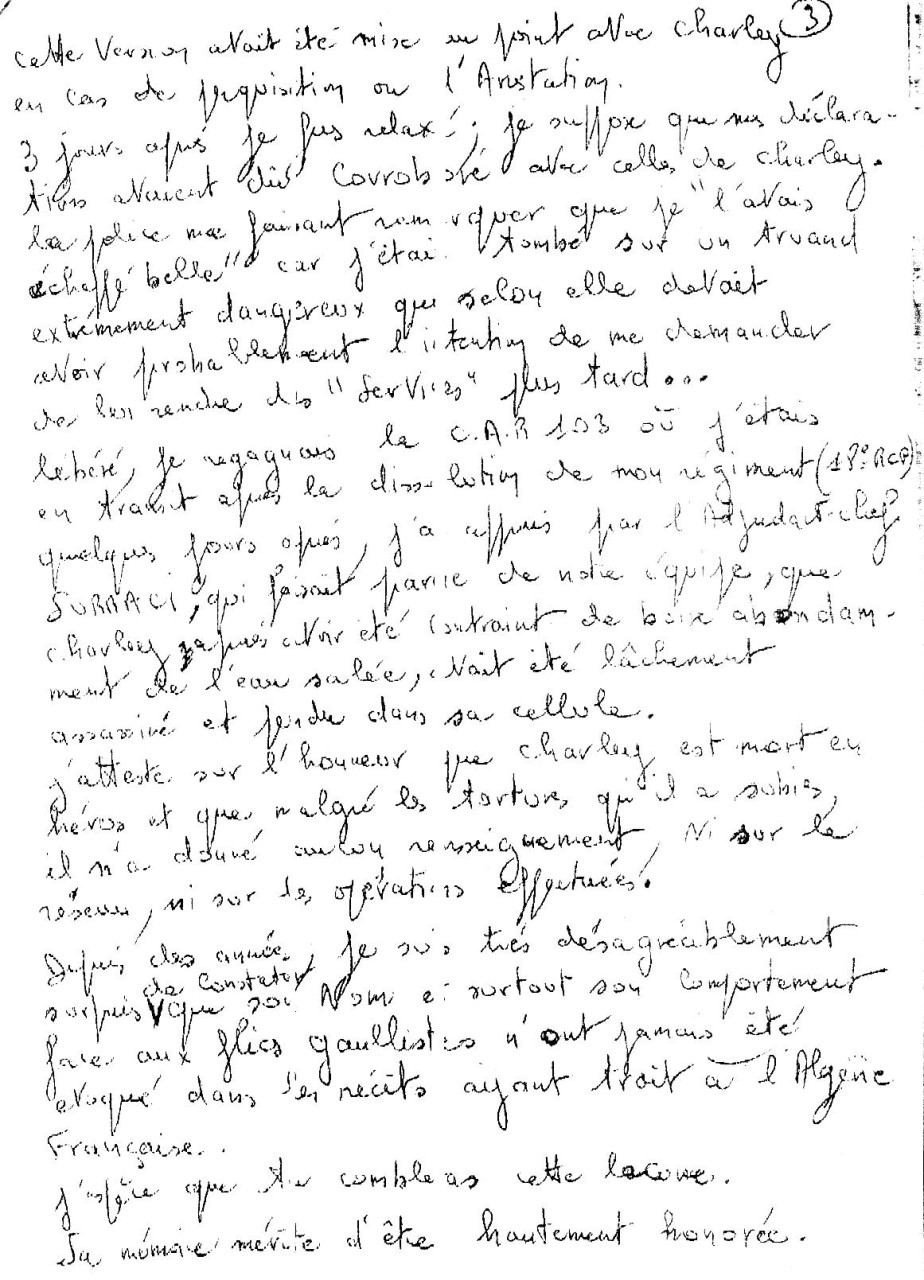 3
cette Version avait été mise au point avec Charley
en cas de perquisition ou l'Arrestation.
3 jours après je fus relaxé; je suppose que mes déclara-
tions avaient été Corroboré avec celles de charley.
La police me faisant remarquer que je "l'avais
échappé belle" car j'étai tombé sur un truand
extrémement dangereux qui selon elle devait
avoir probablement l'intention de me demander
de lui rendre des "services" plus tard...
libéré, je regagnais le C.A.R 103 où j'étais
en transit après la dissolution de mon régiment (18e RCP)
quelques jours après, j'a appris par l'Adjudant-chef
, qui faisait partie de notre équipe, que
charley après avoir été contraint de boire abondam-
ment de l'eau salée, avait été lâchement
assassiné et pendu dans sa cellule.
j'atteste sur l'honneur que charley est mort en
héros et que malgré les tortures qu'il a subies,
il n'a donné aucun renseignement, Ni sur le
réseau, ni sur les opérations effectuées.
Depuis des années, je suis très désagréablement
surpris de constater que son Nom et surtout son comportement
face aux flics gaullistes n'ont jamais été
evoqué dans les récits ayant trait à l'Algérie
Française..
j'espère que tu combleras cette lacune.
Sa mémoire mérite d'être hautement honorée.